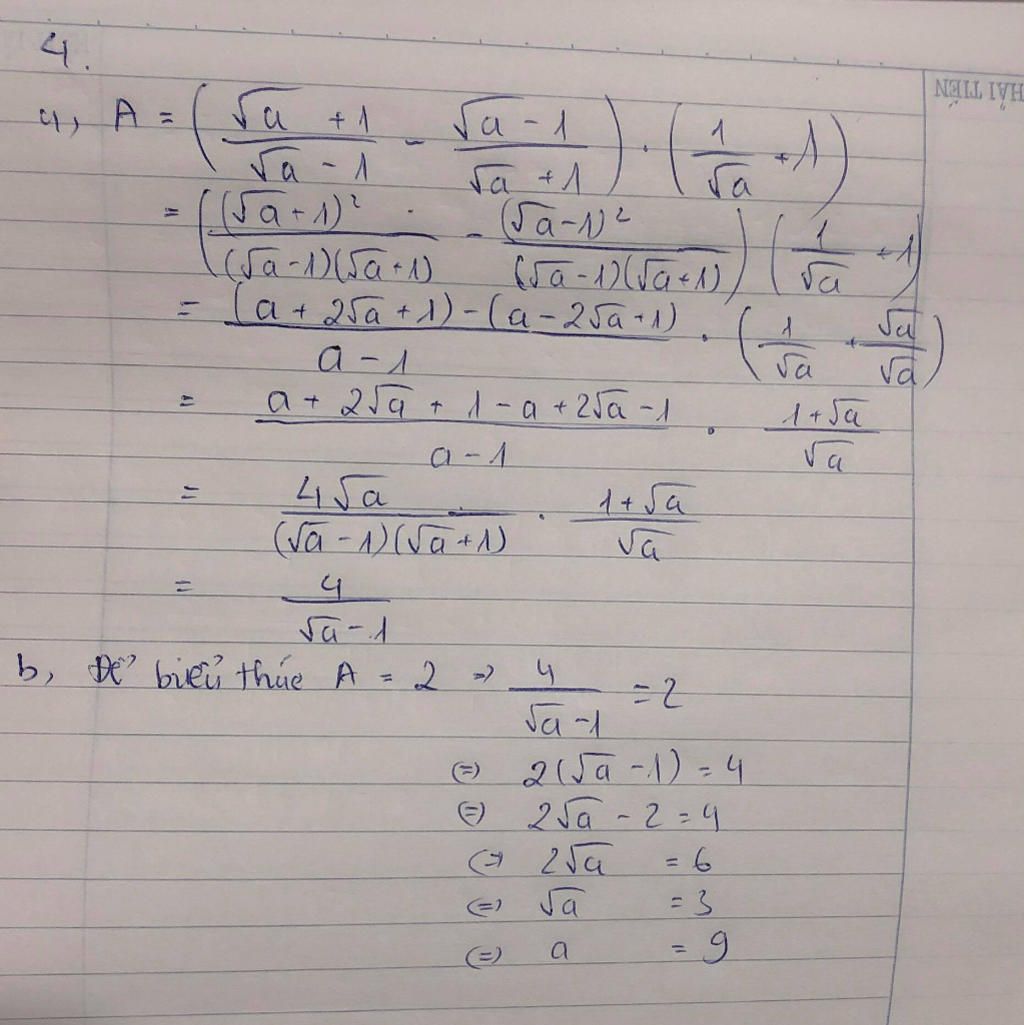 4.
a, A = (√a + 1 / √a - 1 - √a - 1 / √a + 1) . (1 / √a + 1)
= ((√a+1)² / (√a-1)(√a+1) - (√a-1)² / (√a-1)(√a+1)) (1 / √a + 1)
= (a + 2√a + 1) - (a - 2√a + 1) / a - 1 . (1 / √a + √a / √a)
= a + 2√a + 1 - a + 2√a - 1 / a - 1 . 1 + √a / √a
= 4√a / (√a - 1)(√a + 1) . 1 + √a / √a
= 4 / √a - 1
b, Để biểu thức A = 2 => 4 / √a - 1 = 2
(=) 2(√a - 1) = 4
(=) 2√a - 2 = 4
(=) 2√a = 6
(=) √a = 3
(=) a = 9
HẢI TIẾN